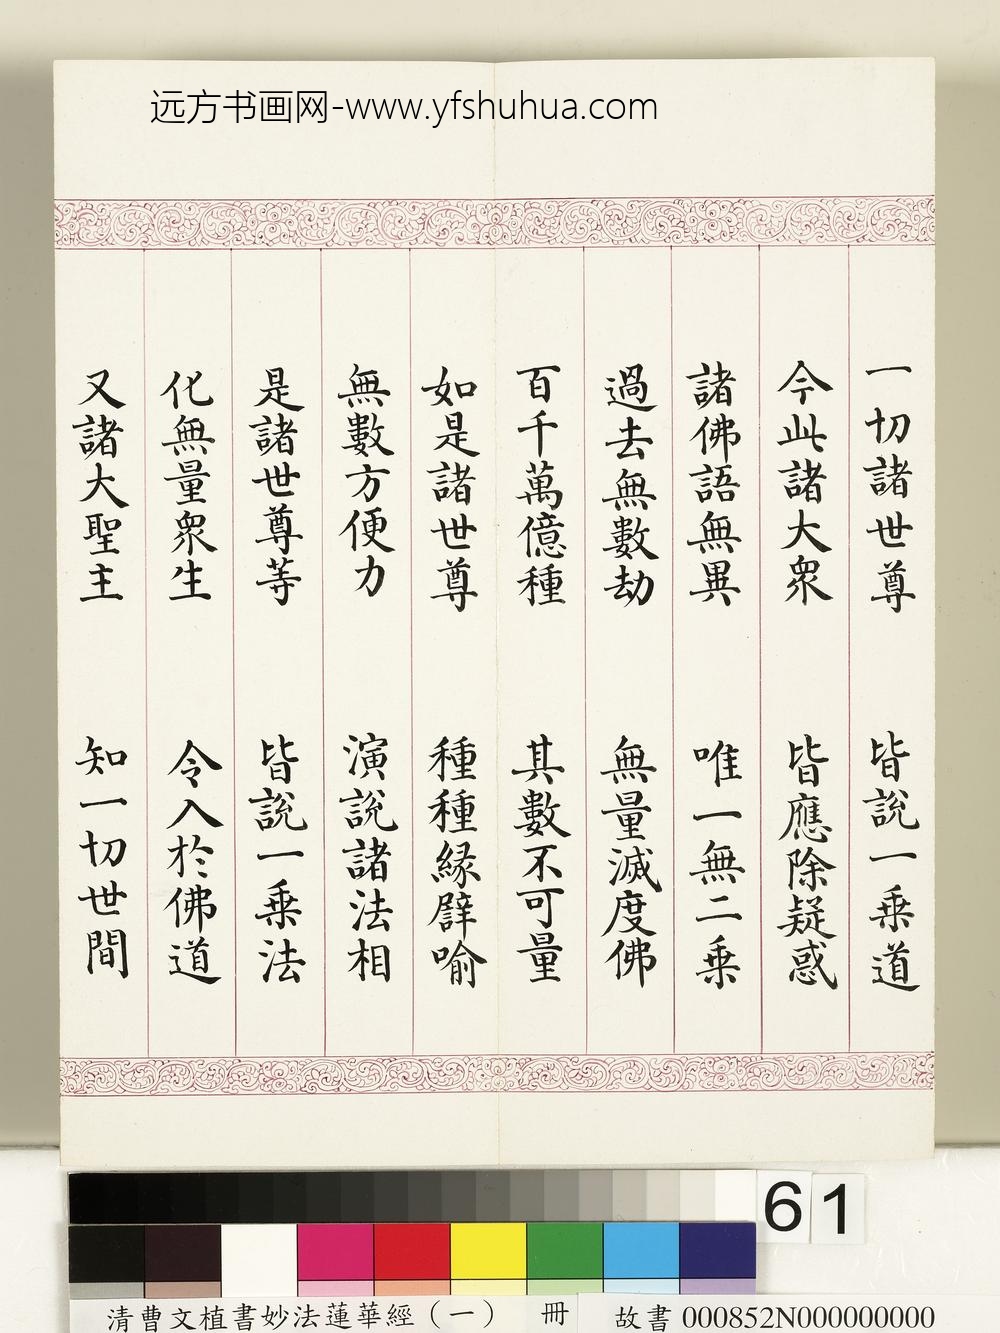 远方书画网-www.yfshuhua.com
一切諸世尊 皆說一乗道
今此諸大衆 皆應除疑惑
諸佛語無異 唯一無二乗
過去無數劫 無量滅度佛
百千萬億種 其數不可量
如是諸世尊 種種緣譬喻
無數方便力 演說諸法相
是諸世尊等 皆說一乗法
化無量衆生 令入於佛道
又諸大聖主 知一切世間
61
清曹文植書妙法蓮華經（一） 冊 故書 000852N000000000